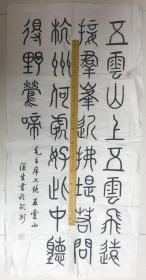 五雲山上五雲飛遠
接群峯近拂堤若問
杭州何處好此中聽
得野鶯啼
毛主席七绝五雲山